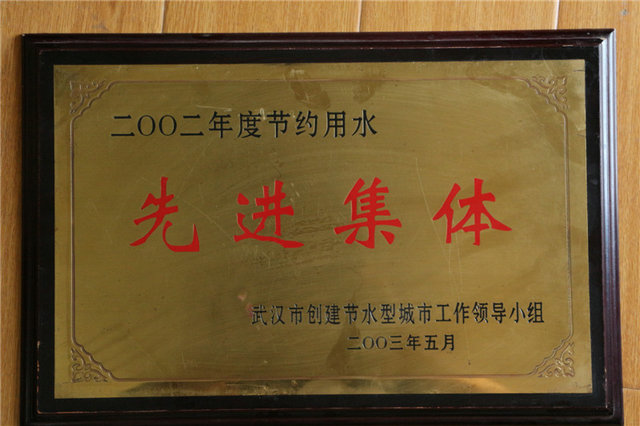 二〇〇二年度节约用水
先进集体
武汉市创建节水型城市工作领导小组
二〇〇三年五月